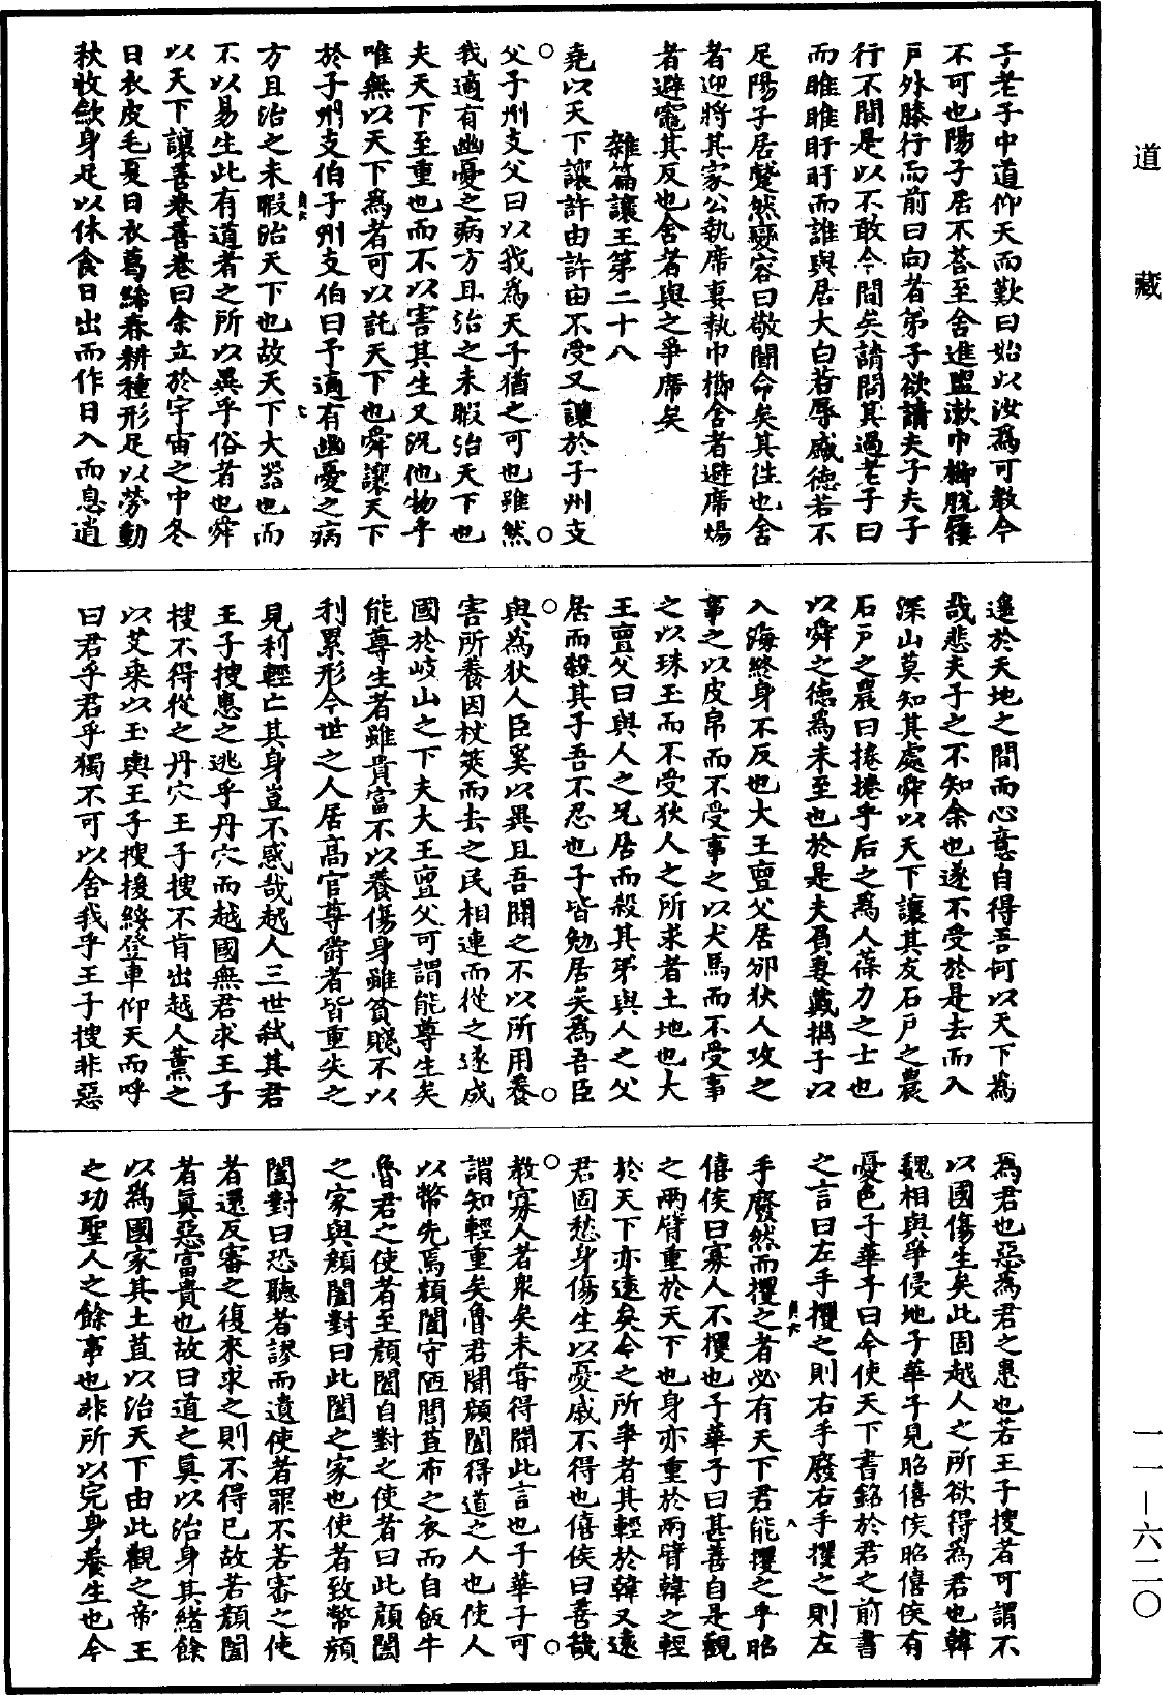 道藏
子老子中道仰天而歎曰始以汝爲可教今
不可也陽子居不荅至舍進盥漱巾櫛脫屨
戶外膝行而前曰向者弟子欲請夫子夫子
行不間是以不敢今間矣請問其過老子曰
而睢睢盱盱而誰與居大白若辱盛德若不
足陽子居蹵然變容曰敬聞命矣其往也舍
者迎將其家公執席妻執巾櫛舍者避席煬
者避竈其反也舍者與之爭席矣
雜篇讓王第二十八
堯以天下讓許由許由不受又讓於子州支
父子州支父曰以我爲天子猶之可也雖然
我適有幽憂之病方且治之未暇治天下也
夫天下至重也而不以害其生又況他物乎
唯無以天下爲者可以託天下也舜讓天下
於子州支伯子州支伯曰予適有幽憂之病
方且治之未暇治天下也故天下大器也而
不以易生此有道者之所以異乎俗者也舜
以天下讓善卷善卷曰余立於宇宙之中冬
日衣皮毛夏日衣葛絺春耕種形足以勞動
秋收斂身足以休食日出而作日入而息逍
遥於天地之間而心意自得吾何以天下爲
哉悲夫子之不知余也遂不受於是去而入
深山莫知其處舜以天下讓其友石戶之農
石戶之農曰捲捲乎后之爲人葆力之士也
以舜之德爲未至也於是夫負妻戴攜子以
入海終身不反也大王亶父居邠狄人攻之
事之以皮帛而不受事之以犬馬而不受事
之以珠玉而不受狄人之所求者土地也大
王亶父曰與人之兄居而殺其弟與人之父
居而殺其子吾不忍也子皆勉居矣爲吾臣
與爲狄人臣奚以異且吾聞之不以所用養
害所養因杖筴而去之民相連而從之遂成
國於岐山之下夫大王亶父可謂能尊生矣
能尊生者雖貴富不以養傷身雖貧賤不以
利累形今世之人居高官尊爵者皆重失之
見利輕亡其身豈不惑哉越人三世弑其君
王子搜患之逃乎丹穴而越國無君求王子
搜不得從之丹穴王子搜不肯出越人薰之
以艾乘以玉輿王子搜援綏登車仰天而呼
曰君乎君乎獨不可以舍我乎王子搜非惡
爲君也惡爲君之患也若王子搜者可謂不
以國傷生矣此固越人之所欲得爲君也韓
魏相與爭侵地子華子見昭僖侯昭僖侯有
憂色子華子曰今使天下書銘於君之前書
之言曰左手攫之則右手廢右手攫之則左
手廢然而攫之者必有天下君能攫之乎昭
僖侯曰寡人不攫也子華子曰甚善自是觀
之兩臂重於天下也身亦重於兩臂韓之輕
於天下亦遠矣今之所爭者其輕於韓又遠
君固愁身傷生以憂戚不得也僖侯曰善哉
教寡人者衆矣未甞得聞此言也子華子可
謂知輕重矣魯君聞顔闔得道之人也使人
以幣先焉顔闔守陋閭苴布之衣而自飯牛
魯君之使者至顔闔自對之使者曰此顔闔
之家與顔闔對曰此闔之家也使者致幣顔
闔對曰恐聽者謬而遺使者罪不若審之使
者還反審之復來求之則不得已故若顔闔
者眞惡富貴也故曰道之眞以治身其緒餘
以爲國家其土苴以治天下由此觀之帝王
之功聖人之餘事也非所以完身養生也今
一一—六二〇